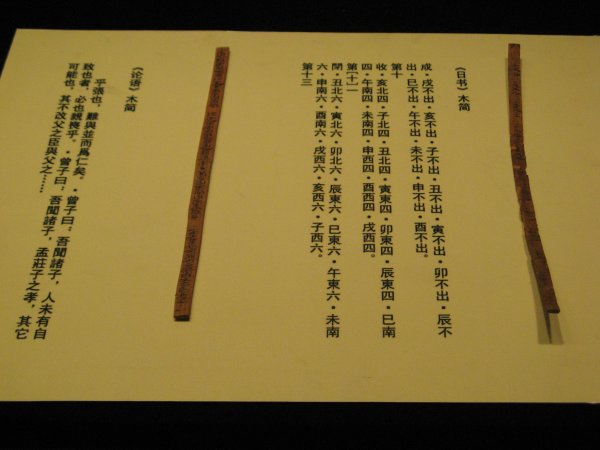 《日书》木简
成·戌不出·亥不出·子不出·丑不出·寅不出·卯不出·辰不
出·巳不出·午不出·未不出·申不出·酉不出。
第十
收·亥北四·子北四·丑北四·寅東四·卯東四·辰東四·巳南
四·午南四·未南四·申西四·酉西四·戌西四。
第[十]一
閉·丑北六·寅北六·卯北六·辰東六·巳東六·午東六·未南
六·申南六·酉南六·戌西六·亥西六·子西六。
第十三
《论语》木简
乎張也，難與並而爲仁矣。·曾子曰：吾聞諸子，人未有自
致也者，必也親喪乎。·曾子曰：吾聞諸子，孟莊子之孝，其它
可能也，其不改父之臣與父之……